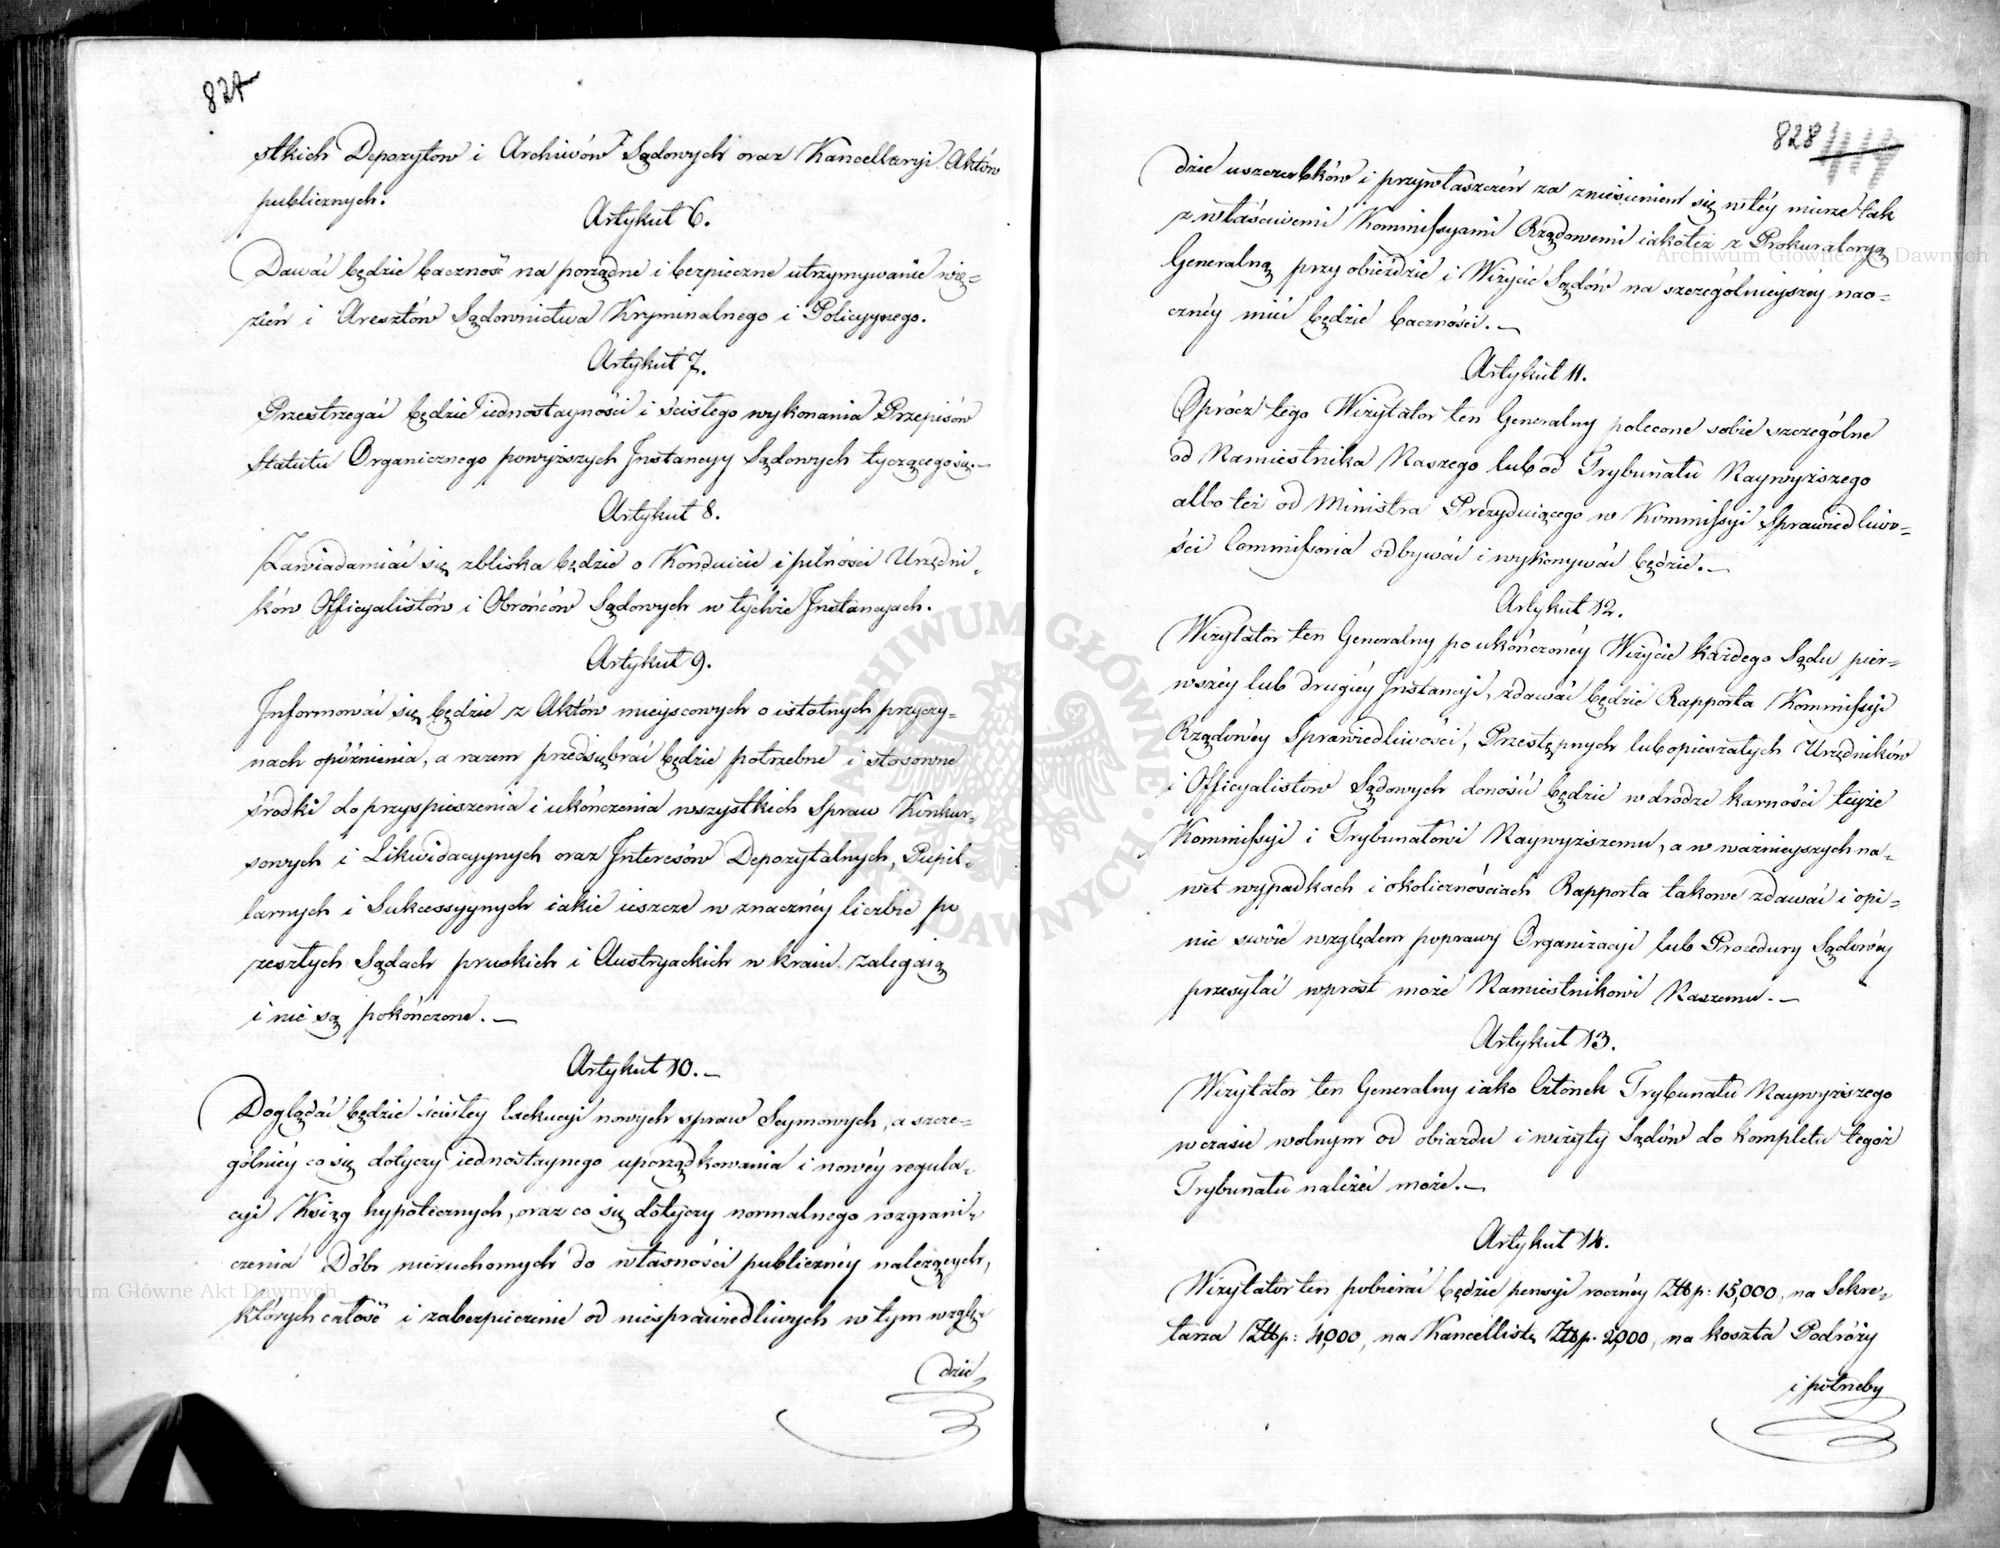 827
stkich Depozytow i Archiwów Sądowych oraz Kancellaryi Aktów
publicznych.
Artykuł 6.
Dawać będzie baczność na porządne i bezpieczne utrzymywanie wię-
zień i Aresztów Sądownictwa Kryminalnego i Policyynego.
Artykuł 7.
Przestrzegać będzie iednostayności i ścisłego wykonania Przepisów
Statutu Organicznego powyższych Instancyy Sądowych tyczącego się.—
Artykuł 8.
Zawiadamiać się zbliska będzie o Konduicie i pilności Urzędni-
ków Officyalistów i Obrońców Sądowych w tychże Instancyach.
Artykuł 9.
Informować się będzie z Aktów mieyscowych o istotnych przyczy-
nach opóźnienia, a razem przedsiębrać będzie potrzebne i stosowne
środki do przyspieszenia i ukończenia wszystkich Spraw Konkur-
sowych i Likwidacyynych oraz Interesów Depozytalnych, Pupil-
larnych i Sukcessyynych iakie ieszcze w znaczney liczbie po
zeszłych Sądach pruskich i Austryackich w kraiu zalegaią
i nie są pokończone.—
Artykuł 10.—
Doglądać będzie ścisłey Exekucyi nowych spraw Seymowych, a szcze-
gólniey co się dotyczy iednostaynego uporządkowania i nowéy regula-
cyi Ksiąg hypotecznych, oraz co się dotyczy normalnego rozgrani-
czenia Dóbr nieruchomych do własności publicznéy należących,
których całość i zabezpieczenie od niesprawiedliwych w tym wzglę-
dzie
828 414
dzie uszczerbków i przywłaszczeń za zniesieniem się w téy mierze tak
z właściwemi Kommissyami Rządowemi iakoteż z Prokuratoryą
Generalną przy obieździe i Wizycie Sądów na szczególnieyszéy nao-
cznéy mieć będzie baczności.—
Artykuł 11.
Oprócz tego Wizytator ten Generalny polecone sobie szczególne
od Namiestnika Naszego lub od Trybunału Naywyższego
albo też od Ministra Prezyduiącego w Kommissyi Sprawiedliwo-
ści Commissoria odbywać i wykonywać będzie.—
Artykuł 12.
Wizytator ten Generalny po ukończonéy Wizycie każdego Sądu pier-
wszéy lub drugiéy Instancyi, zdawać będzie Rapporta Kommissyi
Rządowéy Sprawiedliwości, Przestępnych lub opieszałych Urzędników
i Officyalistow Sądowych donosić będzie w drodze karności teyże
Kommissyi i Trybunałowi Naywyższemu, a w ważnieyszych na-
wet wypadkach i okolicznościach Rapporta takowe zdawać i opi-
nie swoie względem poprawy Organizacyi lub Procedury Sądowéy
przesyłać wprost może Namiestnikowi Naszemu.—
Artykuł 13.
Wizytator ten Generalny iako Członek Trybunału Naywyższego
w czasie wolnym od obiazdu i wizyty Sądów do kompletu tegoż
Trybunału należeć może.—
Artykuł 14.
Wizytator ten pobierać będzie pensyi roczney Złłp: 15,000, na Sekre-
tarza Złłp: 4,000, na Kancellistę Złłp. 2,000, na koszta Podróży
i potrzeby
ARCHIWUM GŁÓWNE AKT DAWNYCH
Archiwum Główne Akt Dawnych
Archiwum Główne Akt Dawnych